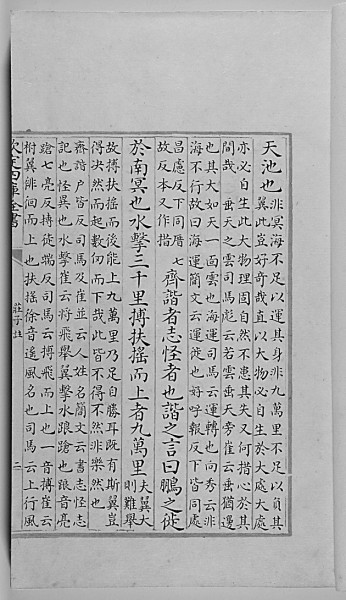 天池也
非冥海不足以運其身非九萬里不足以負其
翼此豈好奇哉直以大物必自生於大處大處
亦必自生此大物理固自然不患其失又何措心於其
間哉 垂天之雲司馬彪云若雲垂天旁崔云垂猶邊
也其大如天一面雲也海運司馬云運轉也向秀云非
海不行故曰海運簡文云運徙也好呼報反下皆同處
昌慮反下同厝七
故反本又作措
齊諧者志怪者也諧之言曰鵬之徙
於南冥也水擊三千里搏扶摇而上者九萬里
夫翼大
則難舉
故搏扶摇而後能上九萬里乃足自勝耳既有斯翼豈
得决然而起數仞而下哉此皆不得不然非樂然也
齊諧户皆反司馬及崔並云人姓名簡文云書志怪志
記也怪異也水擊崔云將飛舉翼擊水踉蹌也踉音亮
蹌七亮反搏徒端反司馬云搏飛而上也一音博崔云
拊翼徘徊而上也扶摇徐音遥風名也司馬云上行風
欽定四庫全書
莊子注
二